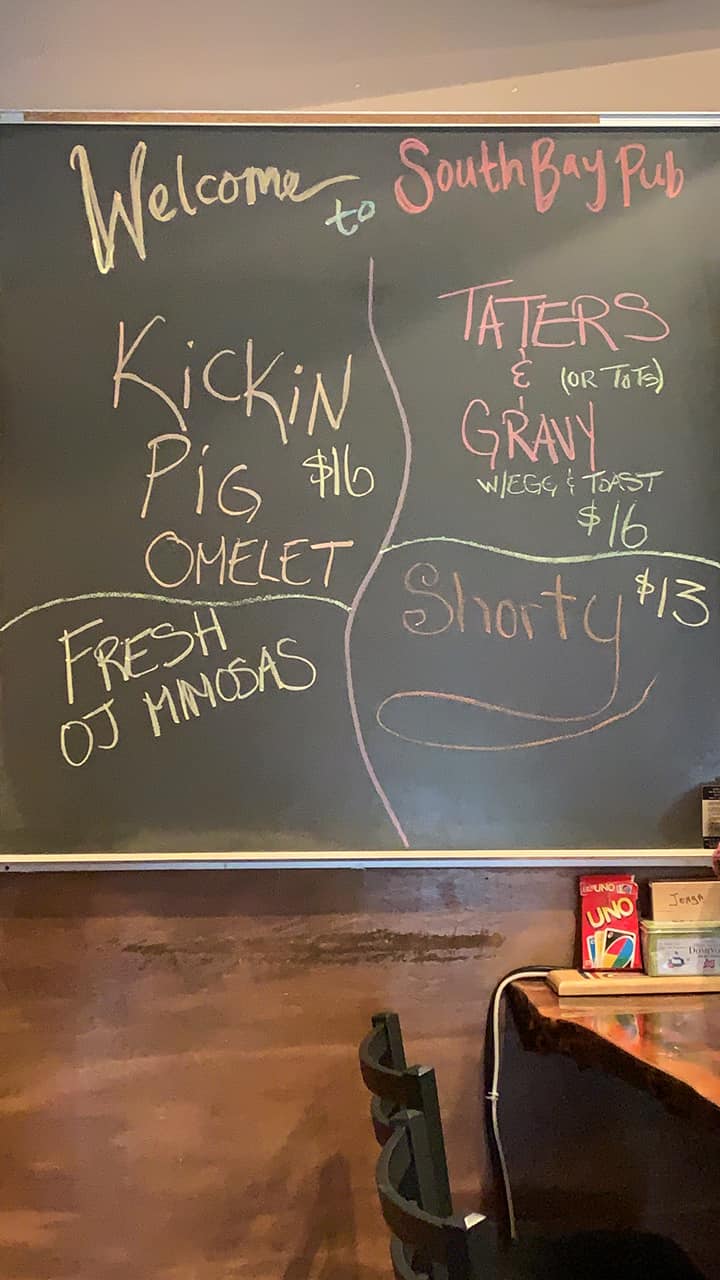 Welcome to South Bay Pub
KicKiN
PiG $16
OMELET
TATERS
& (OR TOTS)
GRAVY
W/EGG & TOAST
$16
Shorty $13
FRESH
OJ MIMOSAS
UNO
UNO
Jenga